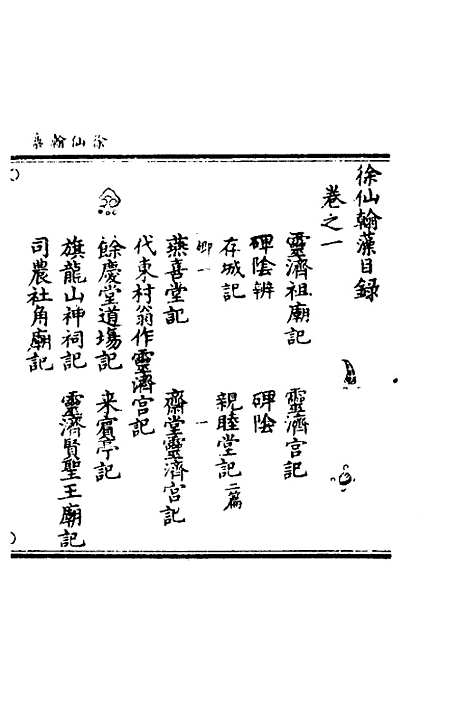 徐仙翰藻
徐仙翰藻目錄
卷之一
靈濟祖廟記 靈濟宮記
碑陰辨 碑陰
存城記 親睦堂記二篇
燕喜堂記 齋堂靈濟宮記
代東村翁作靈濟宮記
餘慶堂道場記 来賓亭記
旗龍山神祠記 靈濟賢聖王廟記
司農社角廟記